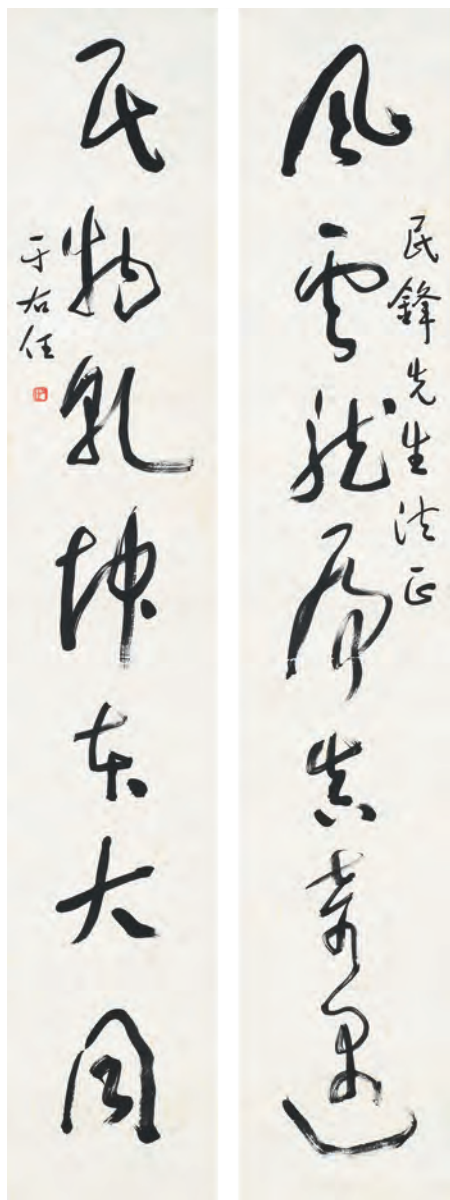 風雲龍虎真奇遇
民鋒先生法正
民物乾坤本大同
于右任